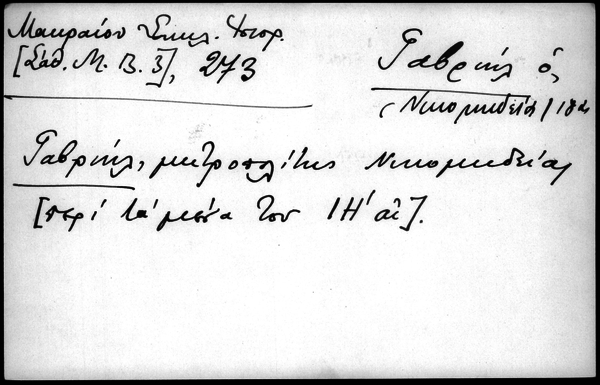 Μακραίου Σικελ. Ἱστορ.
[Σάθ. Μ. Β. 3], 273
Γαβριήλ ὁ,
(Νικομηδείας) 18αι
Γαβριήλ, μητροπολίτης Νικομηδείας
[περί τά μέσα τοῦ ΙΗ' αἰ].